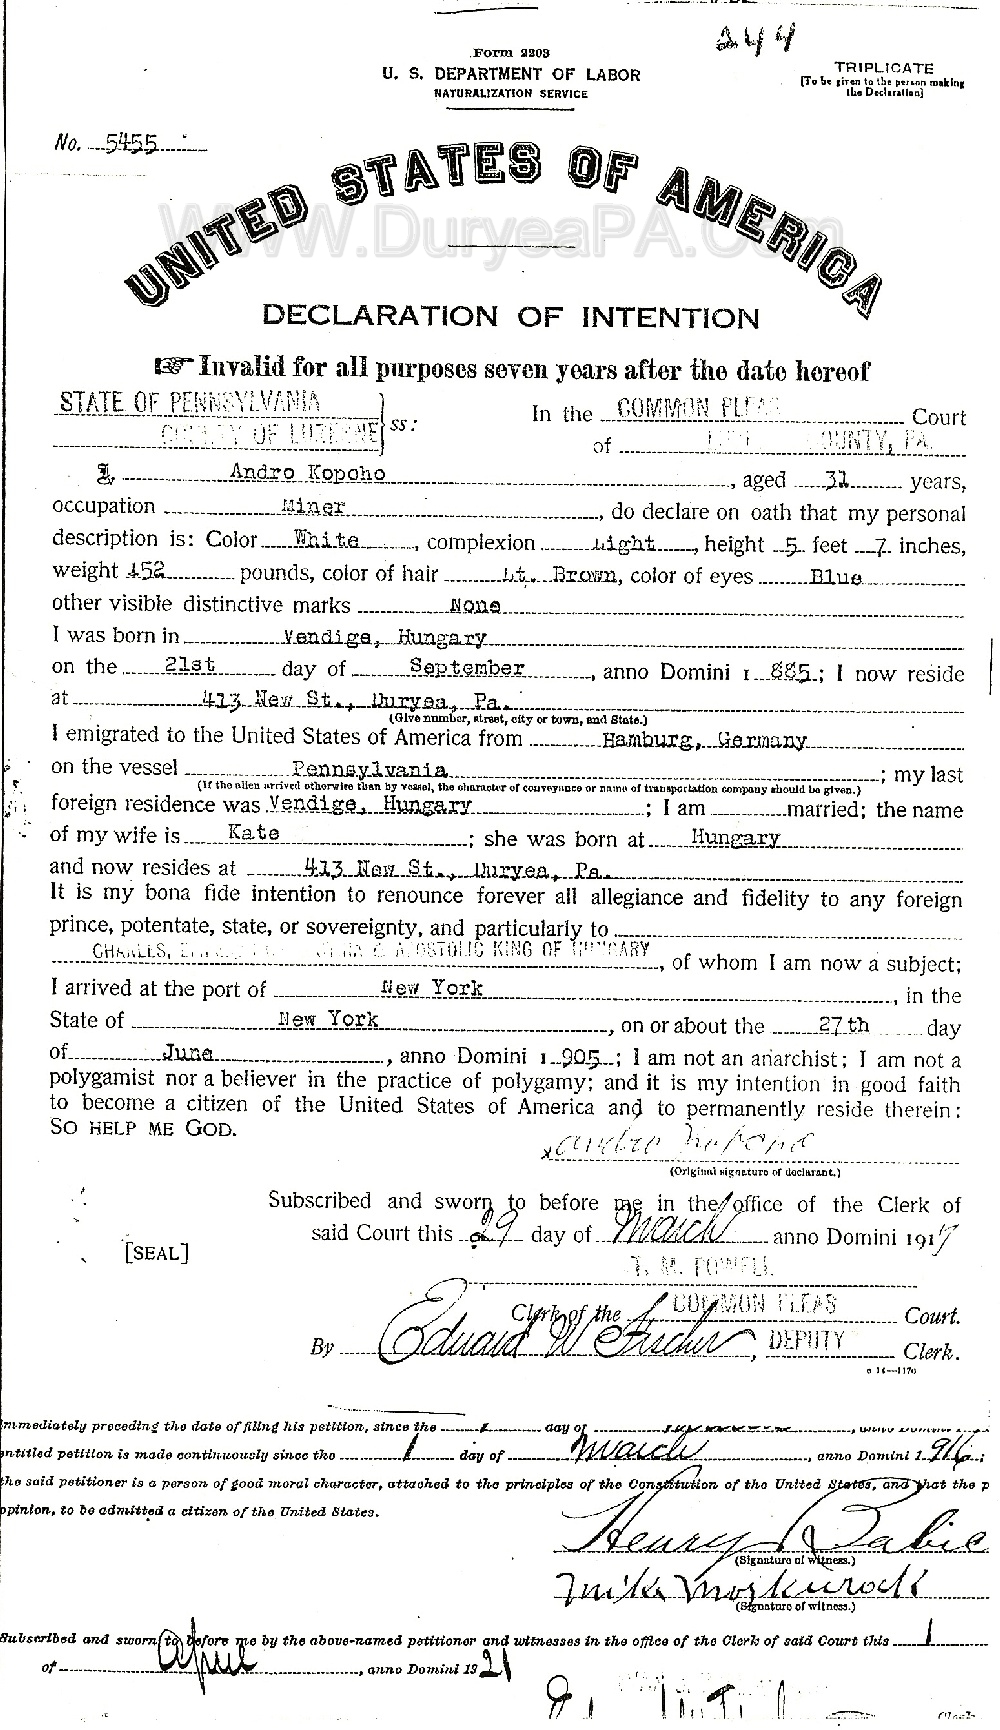 244
Form 2203
U. S. DEPARTMENT OF LABOR
NATURALIZATION SERVICE
TRIPLICATE
[To be given to the person making
the Declaration]
No. 5455
www.DuryeaPA.com
UNITED STATES OF AMERICA
DECLARATION OF INTENTION
Invalid for all purposes seven years after the date hereof
STATE OF PENNSYLVANIA
COUNTY OF LUZERNE
ss:
In the COMMON PLEAS Court
of COUNTY, PA.
I, Andro Kopoho, aged 31 years,
occupation Miner, do declare on oath that my personal
description is: Color White, complexion Light, height 5 feet 7 inches,
weight 152 pounds, color of hair Lt. Brown, color of eyes Blue
other visible distinctive marks None
I was born in Vendige, Hungary
on the 21st day of September, anno Domini 1 885; I now reside
at 413 New St., Duryea, Pa.
(Give number, street, city or town, and State.)
I emigrated to the United States of America from Hamburg, Germany
on the vessel Pennsylvania; my last
(If the alien arrived otherwise than by vessel, the character of conveyance or name of transportation company should be given.)
foreign residence was Vendige, Hungary; I am married; the name
of my wife is Kate; she was born at Hungary
and now resides at 413 New St., Duryea, Pa.
It is my bona fide intention to renounce forever all allegiance and fidelity to any foreign
prince, potentate, state, or sovereignty, and particularly to
CHARLES, APOSTOLIC KING OF HUNGARY, of whom I am now a subject;
I arrived at the port of New York, in the
State of New York, on or about the 27th day
of June, anno Domini 1 905; I am not an anarchist; I am not a
polygamist nor a believer in the practice of polygamy; and it is my intention in good faith
to become a citizen of the United States of America and to permanently reside therein:
SO HELP ME GOD.
x Andro Kopoho
(Original signature of declarant.)
Subscribed and sworn to before me in the office of the Clerk of
said Court this 29 day of March anno Domini 1917
[SEAL]
T. M. POWELL
Clerk of the COMMON PLEAS Court.
By Edward W Fischer, DEPUTY Clerk.
immediately preceding the date of filing his petition, since the day of
entitled petition is made continuously since the 1 day of March, anno Domini 1916;
the said petitioner is a person of good moral character, attached to the principles of the Constitution of the United States, and that the p
opinion, to be admitted a citizen of the United States.
Henry Babic
(Signature of witness.)
Mike
(Signature of witness.)
Subscribed and sworn to before me by the above-named petitioner and witnesses in the office of the Clerk of said Court this 1
of April, anno Domini 1921